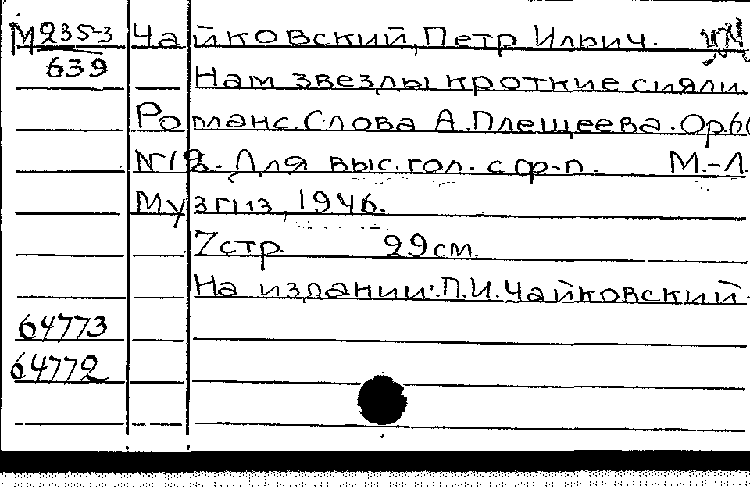 М 235-3 Чайковский, Петр Ильич.
639 Нам звезды кроткие сияли.
Романс. Слова А. Плещеева. Op. 60
N 12. Для выс. гол. с ф-п. М.-Л.
Музгиз, 1946.
7 стр 29 см.
На издании: П.И. Чайковский.
64773
64772